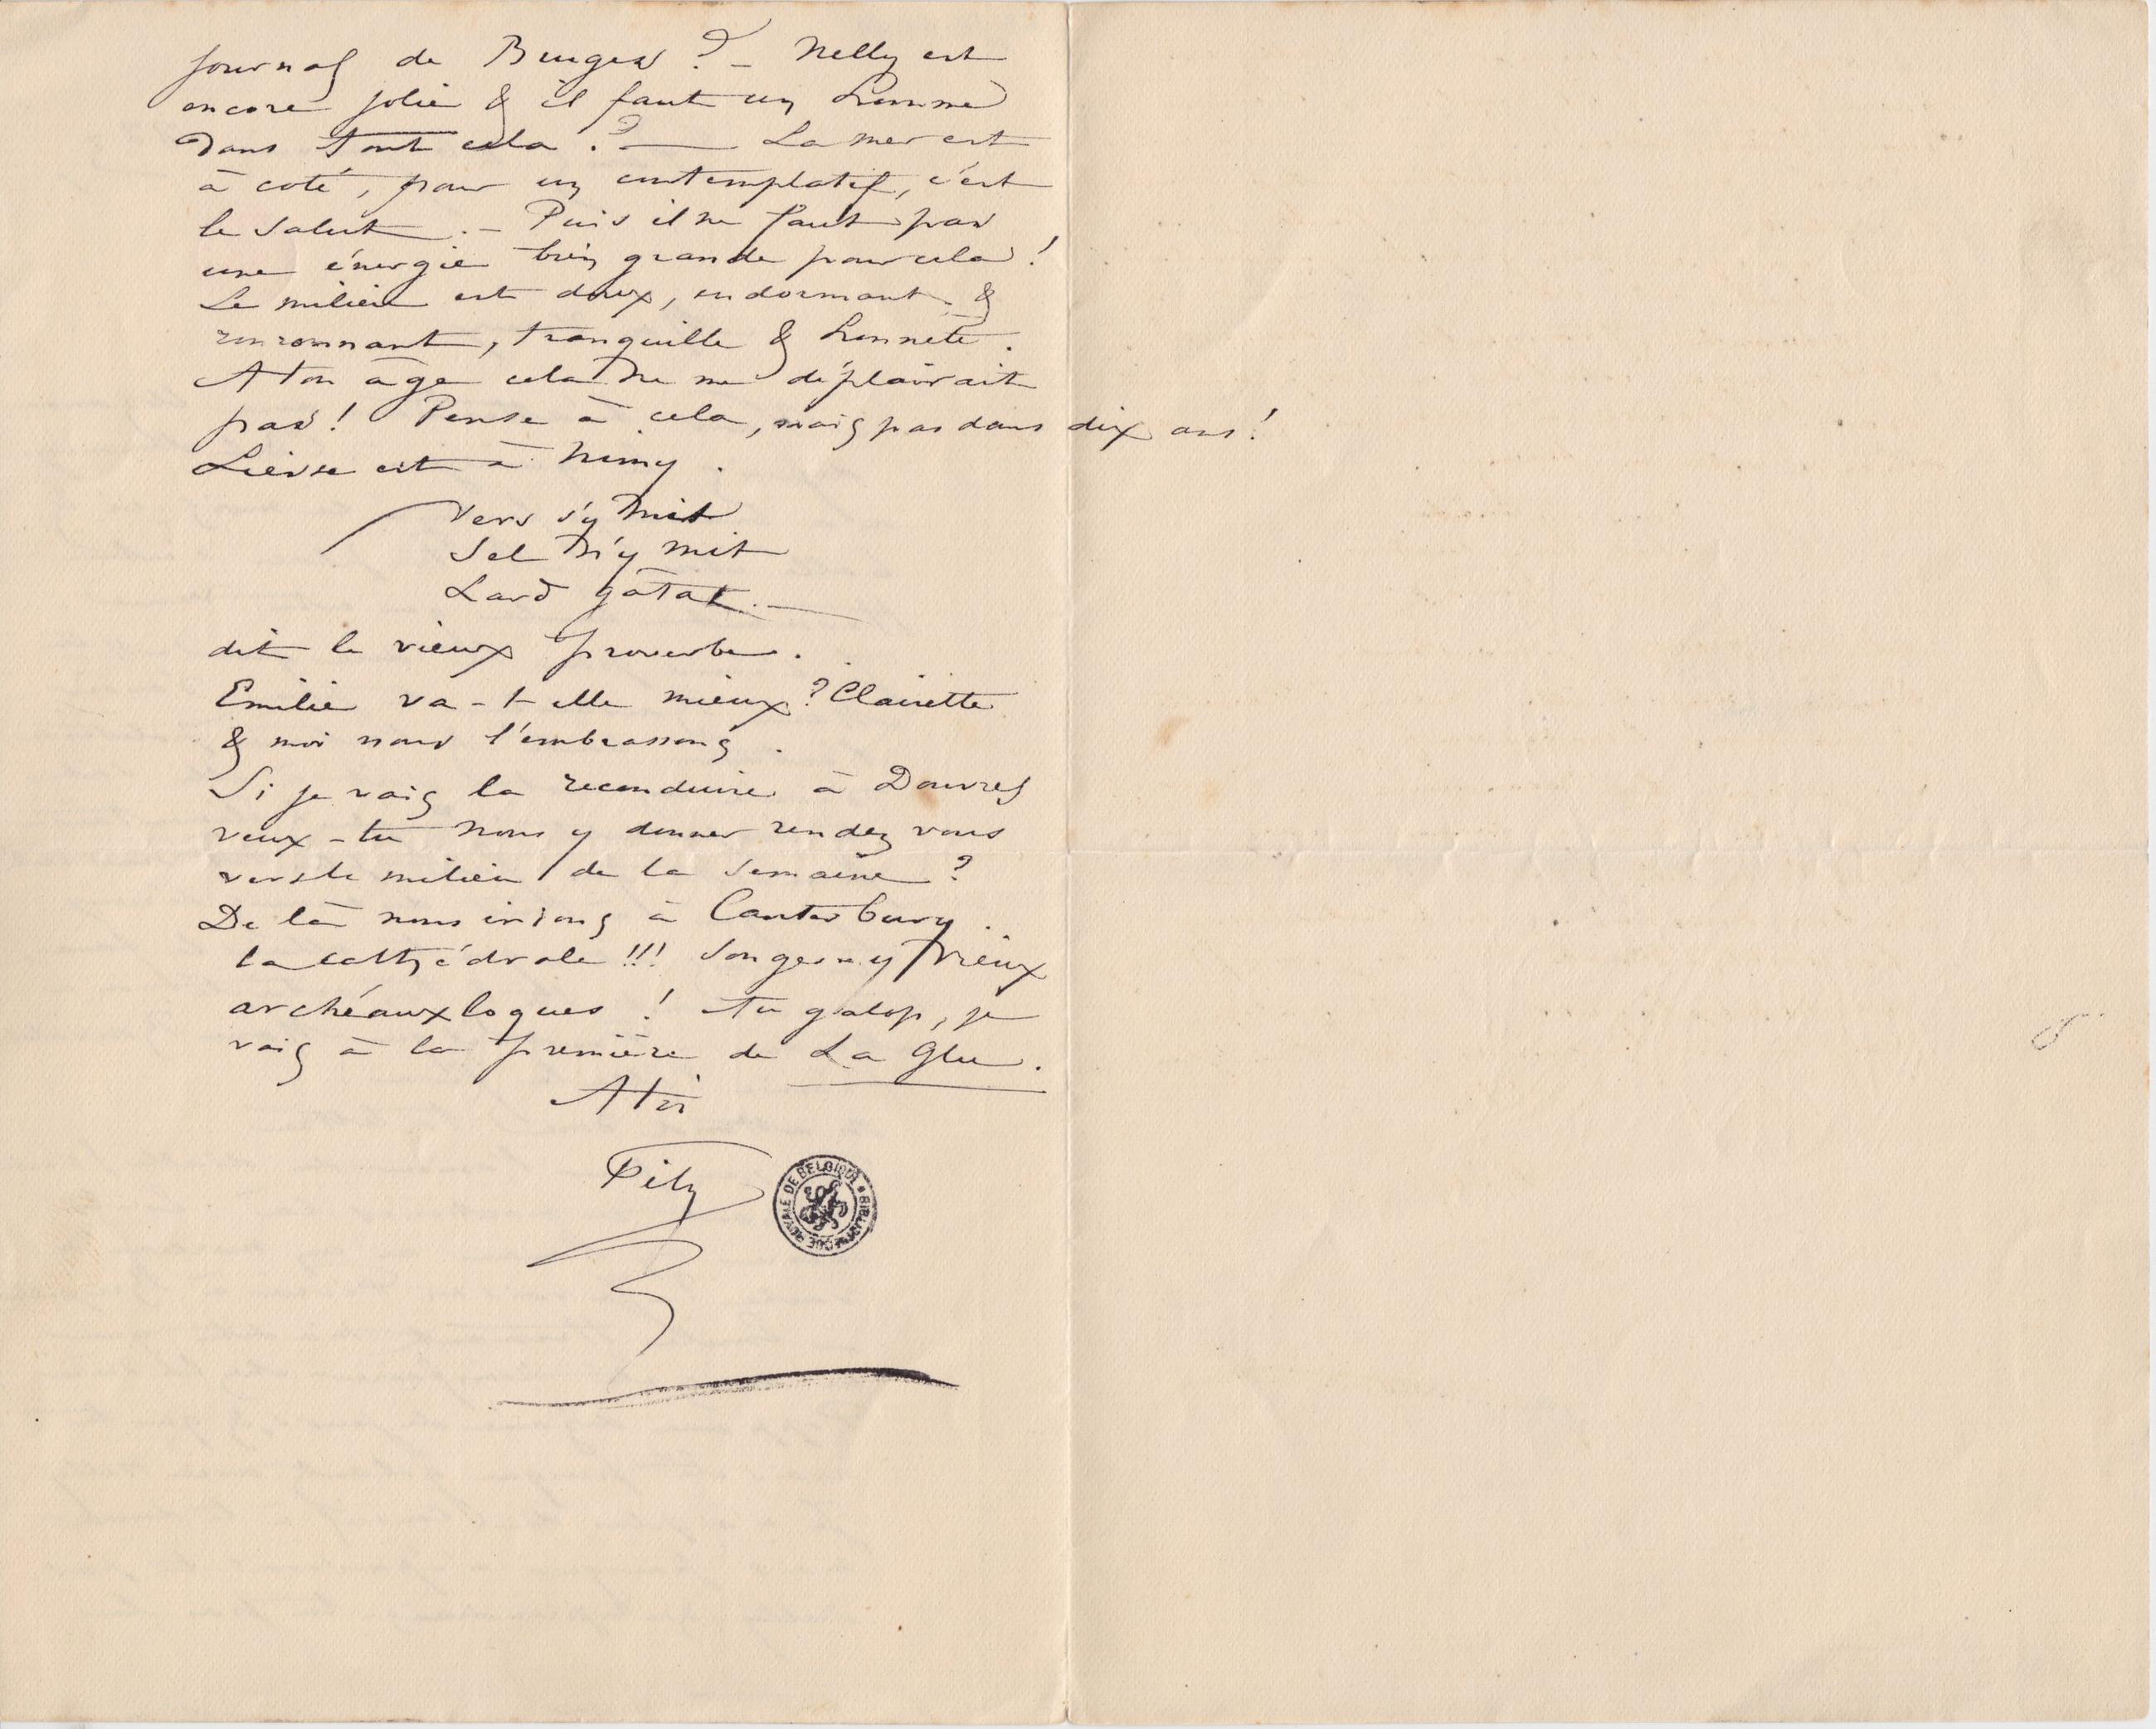 journal de Bruges ? – Nelly est
encore jolie & il faut un homme
dans tout cela ? — La mer est
à coté, pour un contemplatif, c'est
le salut. – Puis il ne faut pas
une énergie bien grande pour cela !
Le milieu est doux, endormant &
ronronnant, tranquille & honnête.
A ton âge cela ne me déplairait
pas ! Pense à cela, mais pas dans dix ans !
Lièvre est à Nimy.
Vers s'y mit
Sel n'y mit
Lard gâtat. —
dit le vieux proverbe.
Emilie va-t-elle mieux ? Clairette
& moi nous l'embrassons.
Si je vais la reconduire à Douvres
veux-tu nous y donner rendez vous
vers le milieu de la semaine ?
De là nous irions à Canterbury.
la cathédrale !!! Songes-y vieux
archéauxlogues ! Au galop, je
vais à la première de La Glu.
A toi
Fély
BIBLIOTHÈQUE ROYALE DE BELGIQUE